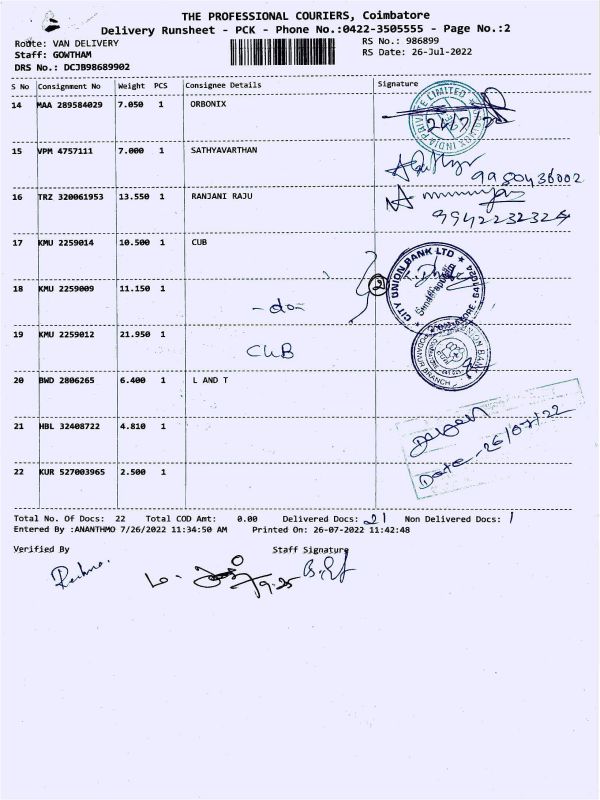 THE PROFESSIONAL COURIERS, Coimbatore
Delivery Runsheet - PCK - Phone No.:0422-3505555 - Page No.:2
Route: VAN DELIVERY
Staff: GOWTHAM
DRS No.: DCJB98689902
RS No.: 986899
RS Date: 26-Jul-2022
S No Consignment No Weight PCS Consignee Details Signature
14 MAA 289584029 7.050 1 ORBONIX
15 VPM 4757111 7.000 1 SATHYAVARTHAN
9980436002
16 TRZ 320061953 13.550 1 RANJANI RAJU
9942232324
17 KMU 2259014 10.500 1 CUB
CITY UNION BANK LTD
18 KMU 2259009 11.150 1 - do -
2
19 KMU 2259012 21.950 1 CUB
20 BWD 2806265 6.400 1 L AND T
21 HBL 32408722 4.810 1
Date - 26/07/22
22 KUR 527003965 2.500 1
Total No. Of Docs: 22 Total COD Amt: 0.00 Delivered Docs: 21 Non Delivered Docs: 1
Entered By :ANANTHMO 7/26/2022 11:34:50 AM Printed On: 26-07-2022 11:42:48
Verified By Staff Signature